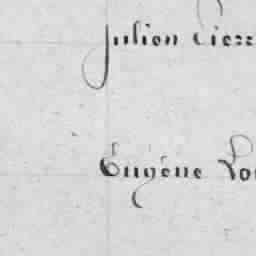 Julien Pierr
Eugène Lou